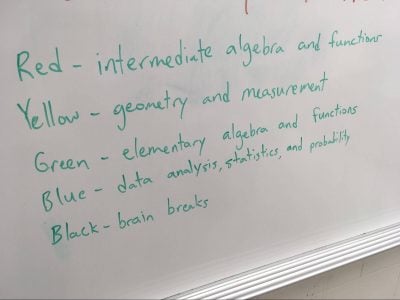 Red - intermediate algebra and functions
Yellow - geometry and measurement
Green - elementary algebra and functions
Blue - data analysis, statistics, and probability
Black - brain breaks